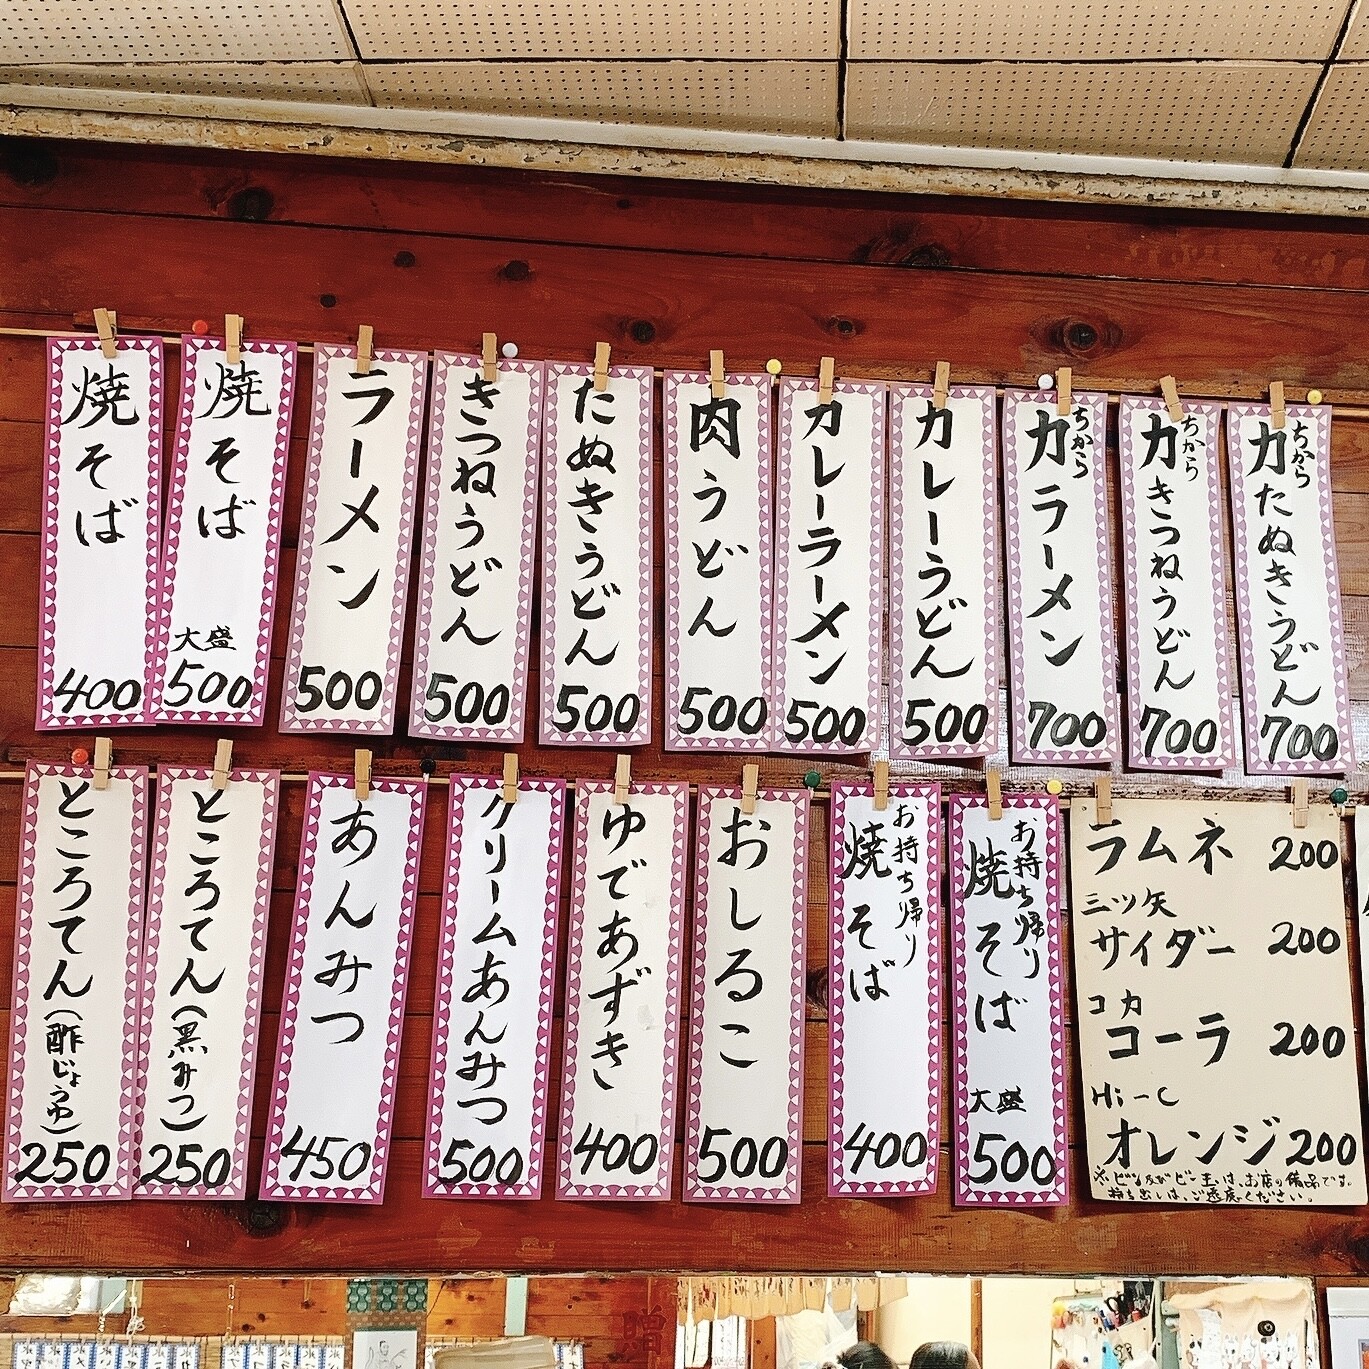 焼そば 400
焼そば 大盛 500
ラーメン 500
きつねうどん 500
たぬきうどん 500
肉うどん 500
カレーラーメン 500
カレーうどん 500
力ちからラーメン 700
力ちからきつねうどん 700
力ちからたぬきうどん 700
ところてん(酢じょうゆ) 250
ところてん(黒みつ) 250
あんみつ 450
クリームあんみつ 500
ゆであずき 400
おしるこ 500
お持ち帰り
焼そば 400
お持ち帰り
焼そば 大盛 500
ラムネ 200
三ツ矢
サイダー 200
コカ
コーラ 200
Hi-C
オレンジ 200
※ビン及びビー玉は、お店の備品です。
持ち出しは、ご遠慮ください。
贈